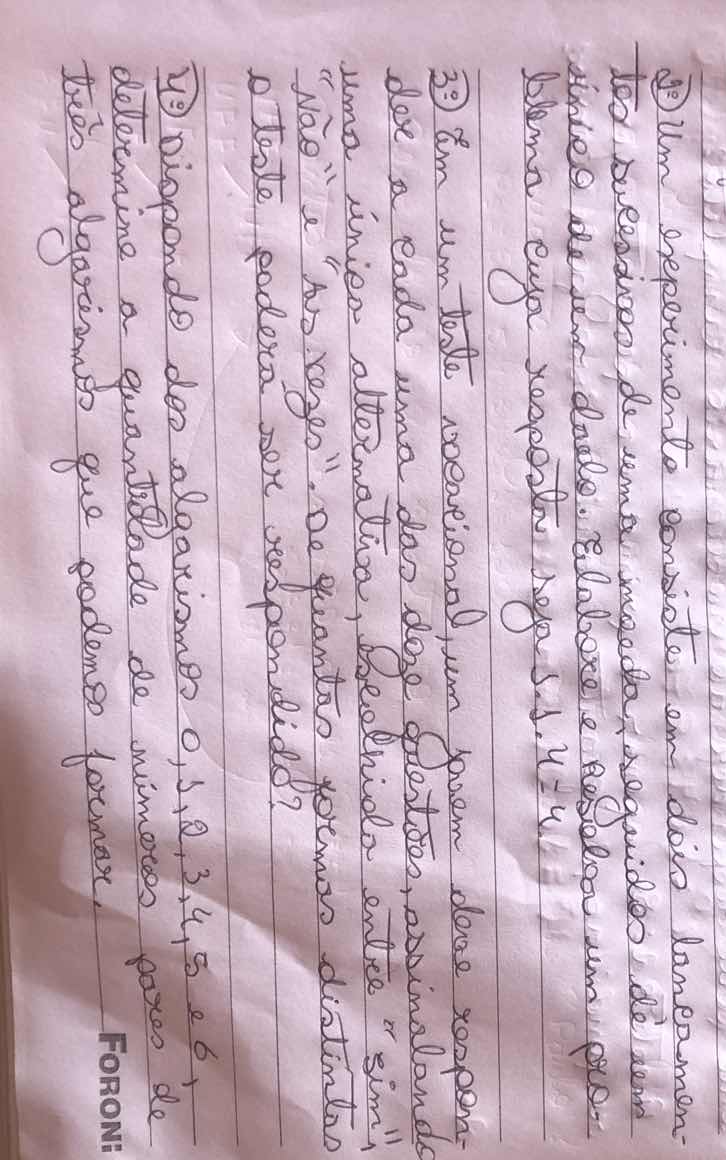 2º) Um experimento consiste em dois lançamen-
tos sucessivos de uma moeda, seguidos de um
único de um dado. Elabore e Resolva um pro-
blema cuja resposta seja 1.1.4=4.
3º) Em um teste vocacional, um jovem deve respon-
der a cada uma das doze questões, assinalando
uma única alternativa, escolhida entre "sim",
"Não" e "às vezes". De quantas formas distintas
o teste poderá ser respondido?
4º) Dispondo dos algarismos 0,1,2,3,4,5 e 6,
determine a quantidade de números pares de
três algarismos que podemos formar.
FORONI